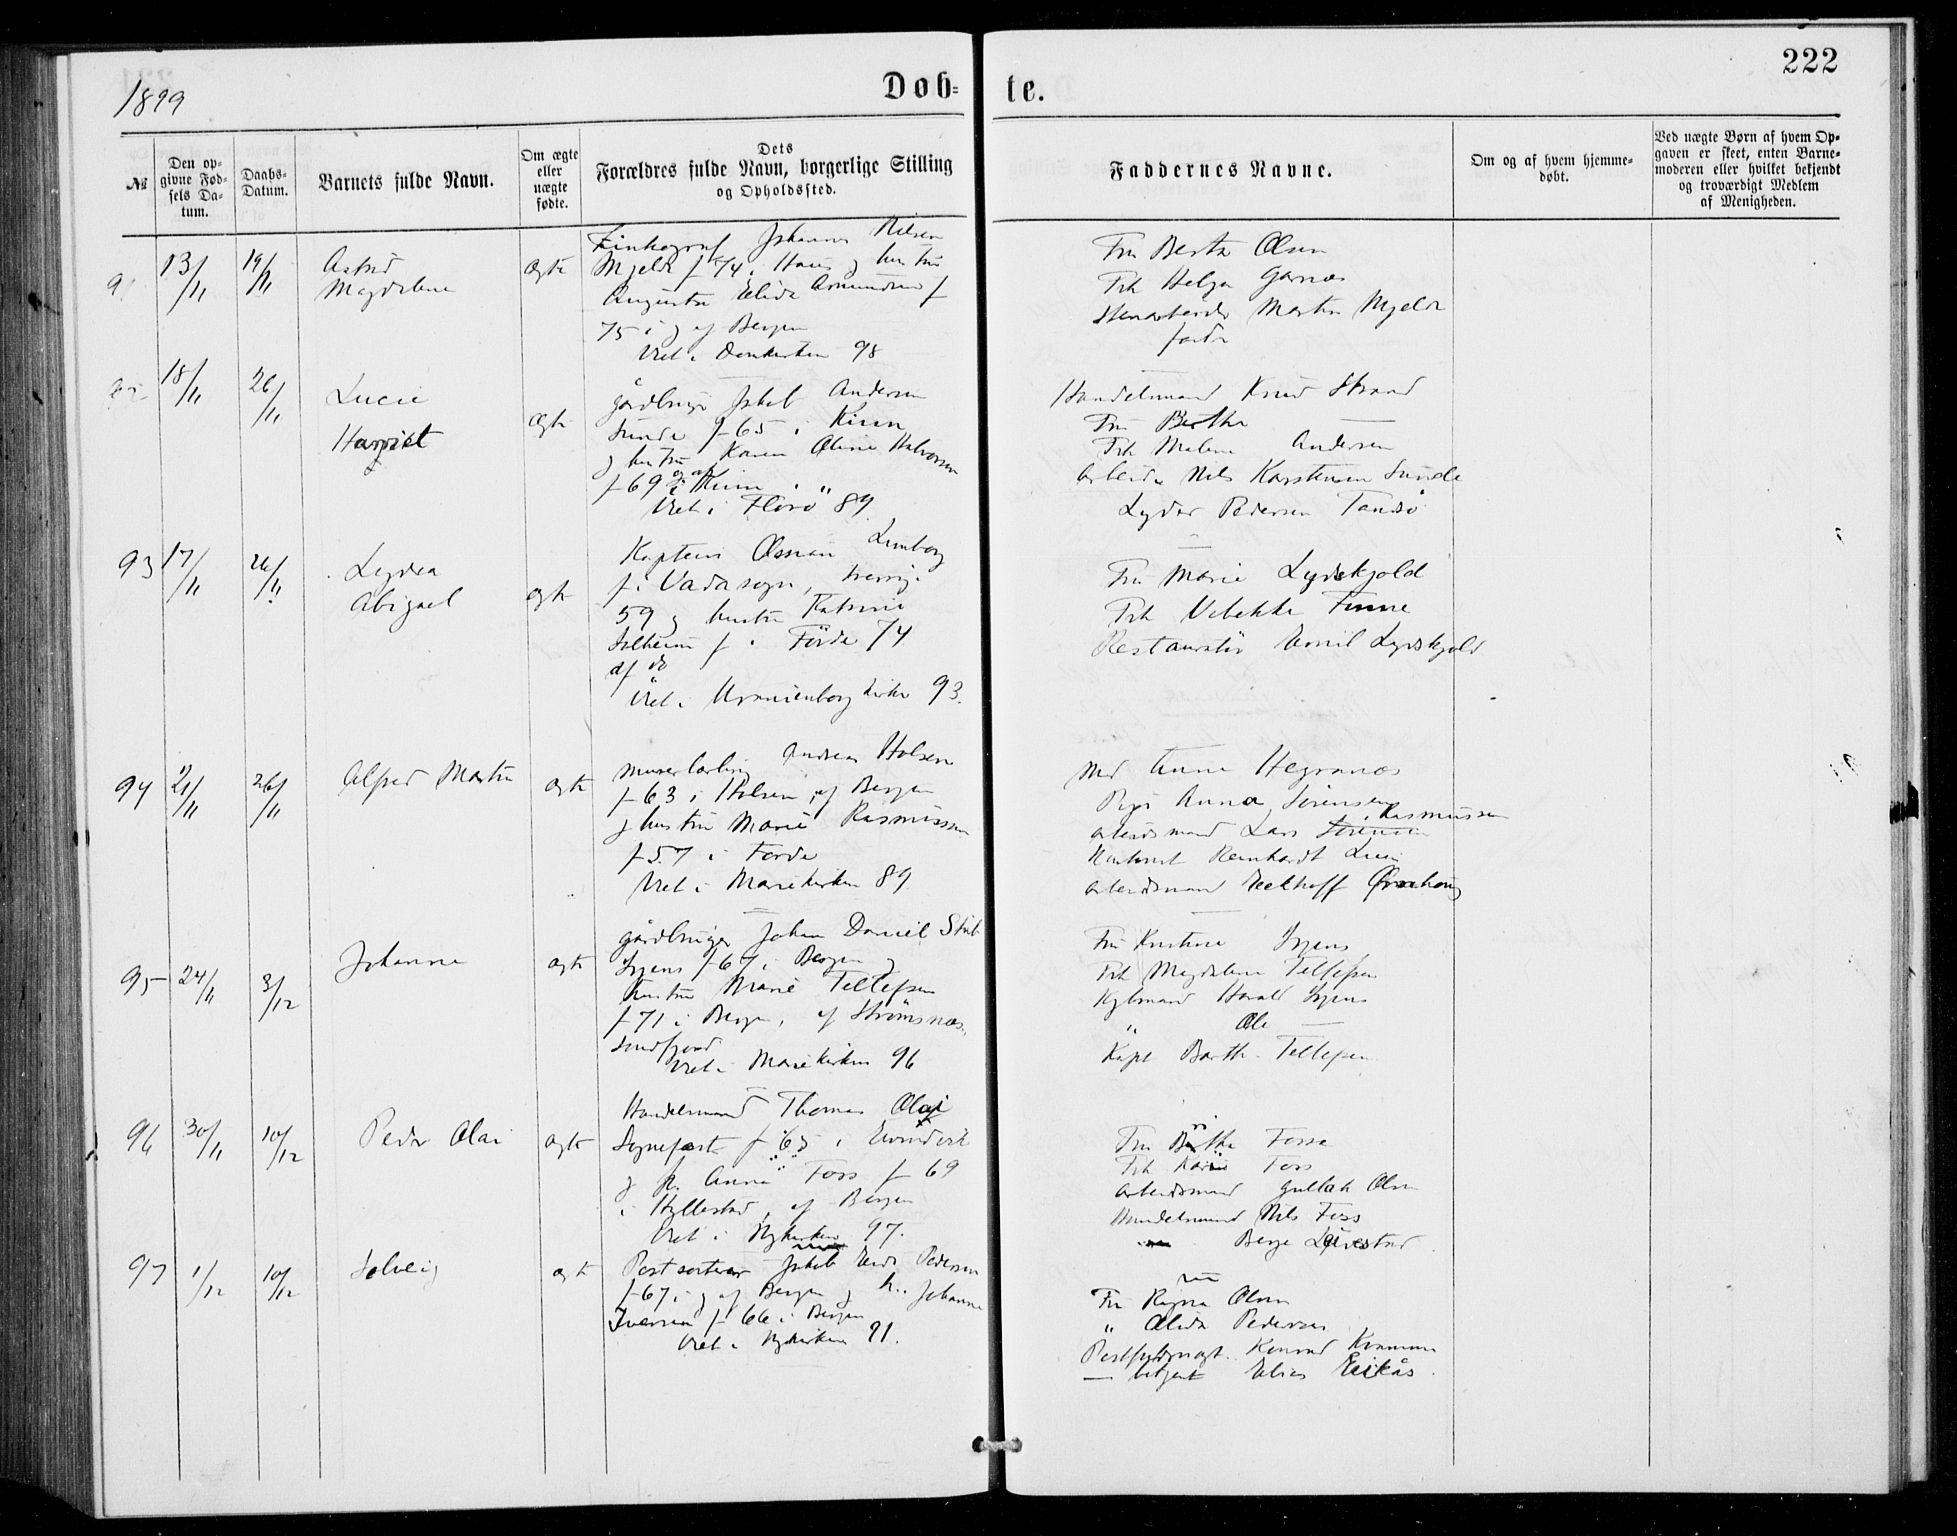 222
1899
Døb-
te.
№
Den op-
givne Fød-
sels Da-
tum.
Daabs-
Datum.
Barnets fulde Navn.
Om ægte
eller
uægte
fødte.
Dets
Forældres fulde Navn, borgerlige Stilling
og Opholdssted.
Faddernes Navne.
Om og af hvem hjemme-
døbt.
Ved uægte Børn af hvem Op-
gaven er skeet, enten Barne-
moderen eller hvilket bekjendt
og troværdigt Medlem
af Menigheden.
13/11
19/11
Astrid
Magdalena
ægte
Zinkograf Johannes Nilsen
Mjelde f 74 i Haus og hustru
Augusta Elida Amundsen f
75 i og af Bergen
Viet i Domkirken 98
Fru Berta Olsen
Frk Helga Garnæs
Stenarbeider Martin Mjelde
fader
92
18/11
26/11
Lucie
Harriet
ægte
gårdbruger Jakob Andersen
Sunde f 65 i Kinn
og hustru Karen Oline Halvorsen
f 69 i og af Kinn
Viet i Florö 89
Handelsmand Knud Strand
Fru Berthe —
Frk Malene Andersen
arbeider Nils Karstensen Sunde
Lyder Pedersen Tansø
93
17/11
26/11
Lydia
Abigael
ægte
Kaptein Ossian Limborg
f. i Vada sogn, Sverrig
59 og hustru Katrine
Solheim f i Förde 74
af do
Viet i Uranienborg kirke 93.
Fru Marie Lydskjold
Frk Vibekke Finne
Restauratör Emil Lydskjold
94
21/11
26/11
Alfred Martin
ægte
Murerlærling Andreas Holsen
f 63 i Holsen, af Bergen
og hustru Marie Rasmussen
f 57 i Førde
Viet i Mariekirken 89
Md Anna Hegrenæs
Pige Anna Sørensen
arbeidsmand Lars Sørensen Rasmussen
Reinhardt
arbeidsmand
95
24/11
3/12
Johanne
ægte
gårdbruger Johan Daniel Stub
Irgens f 67 i Bergen og
hustru Marie Tellefsen
f 71 i Bergen, af Strømsnæs
Søndfjord
Viet i Mariekirken 96
Fru Kristine Irgens
Frk Magdalene Tellefsen
Kjbmand Harald Irgens
" Ole —
Kapt Barth. Tellefsen
96
30/11
10/12
Peder Olai
ægte
Handelsmand Thomas Olai
Sognefæst f 65 i Evindvik
og h. Anna Foss f 69
i Hyllestad, af Bergen
Viet i Nykirken 97.
Fru Berthe Fosse
Frk Karin Foss
arbeidsmand Gullak Olsen
Handelsmand Nils Foss
Berge Leivestad
97
1/12
10/12
Solveig
ægte
Postsorterer Jakob Pedersen
f 67 i og af Bergen og h. Johanne
Iversen f 66 i Bergen
Viet i Nykirken 91.
Fru Olsen
" Alida Pedersen
Postfuldmægt. Konrad
— betjent Elias Eikås.